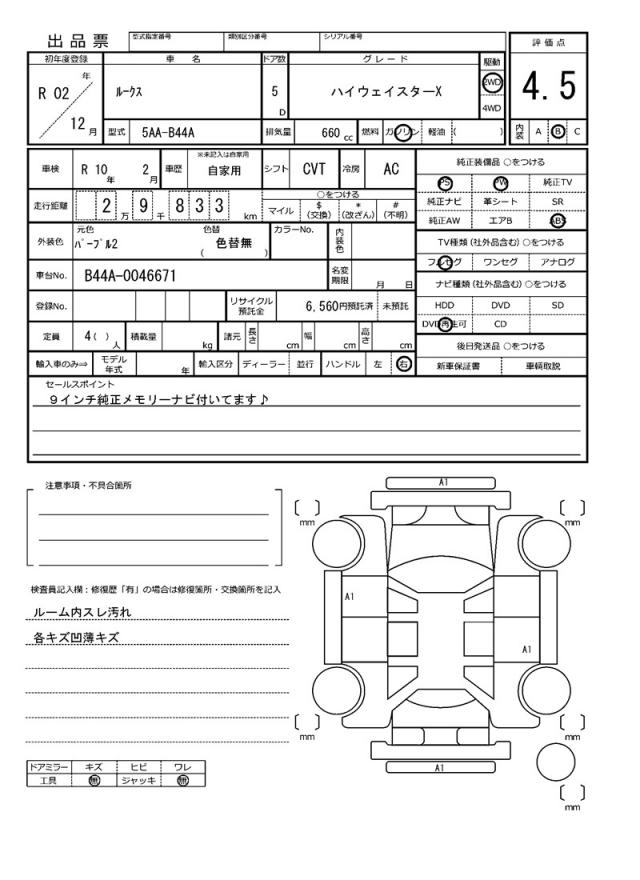 出品票
型式指定番号 類別区分番号 シリアル番号
評価点
初年度登録 車名 ドア数 グレード 駆動
R 02 年 12 月
ルークス 5 D ハイウェイスターX 2WD 4WD
4.5
型式 5AA-B44A 排気量 660 cc 燃料 ガソリン 軽油 ( )
内装 A B C
車検 R 10 年 2 月 車歴 ※未記入は自家用 自家用 シフト CVT 冷房 AC
走行距離 2 万 9 千 8 3 3 km
○をつける
マイル $ (交換) * (改ざん) # (不明)
外装色 元色 パープル2 色替 ( 色替無 ) カラーNo. 内装色
車台No. B44A-0046671 名変期限 月 日
登録No. リサイクル預託金 6,560円預託済 未預託
定員 4( ) 人 積載量 kg 諸元 長さ cm 幅 cm 高さ cm
輸入車のみ⇒ モデル年式 年 輸入区分 ディーラー 並行 ハンドル 左 右
純正装備品 ○をつける
PS PW 純正TV
純正ナビ 革シート SR
純正AW エアB ABS
TV種類(社外品含む)○をつける
フルセグ ワンセグ アナログ
ナビ種類(社外品含む)○をつける
HDD DVD SD
DVD再生可 CD
後日発送品 ○をつける
新車保証書 車輌取説
セールスポイント
9インチ純正メモリーナビ付いてます♪
注意事項・不具合箇所
検査員記入欄:修復歴「有」の場合は修復箇所・交換箇所を記入
ルーム内スレ汚れ
各キズ凹薄キズ
ドアミラー キズ ヒビ ワレ
工具 無 ジャッキ 無
A1
mm mm
A1
A1
mm mm
A1
mm